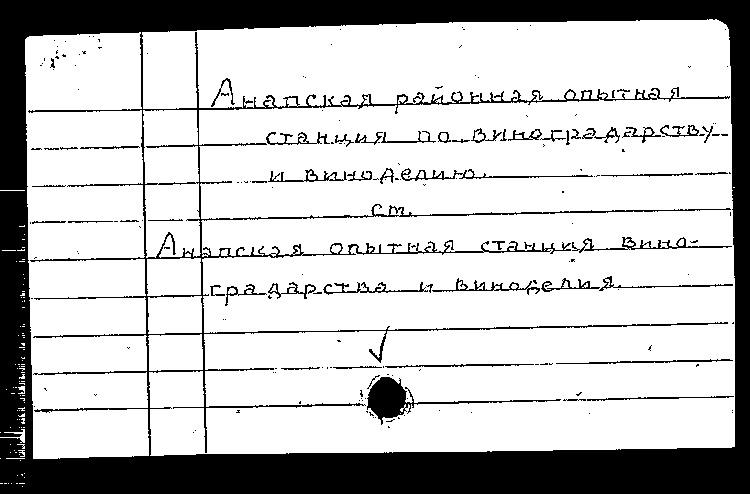 Анапская районная опытная
станция по виноградарству
и виноделию.
ст.
Анапская опытная станция вино-
градарства и виноделия.